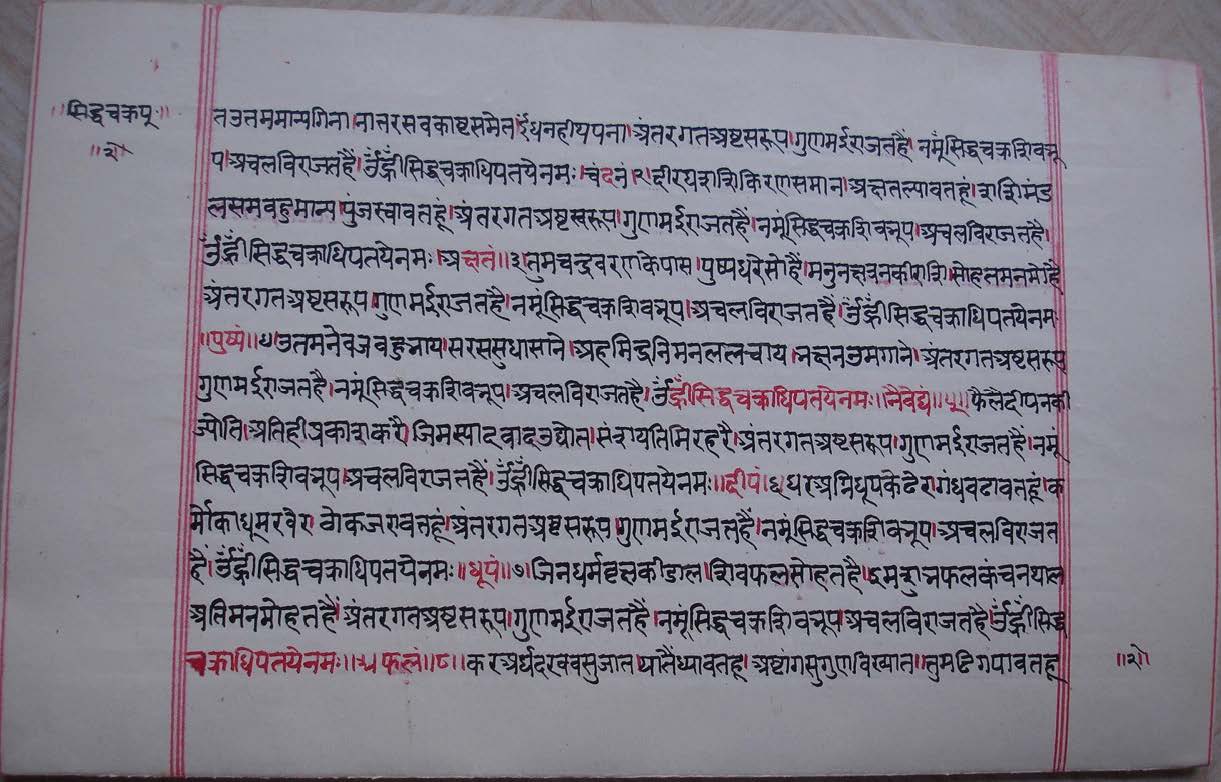 ॥सिद्धचक्रपू॥
॥२॥
तउत्तममान्यगिना।नात्तरसवकाष्टसमेत।ईधनहीयपना।अंतरगतअष्टसरूप।गुणमईराजतहैं।नमूंसिद्धचक्रशिवभूप
प।अचलविराजतहैं।ॐह्रींसिद्धचक्राधिपतयेनमः।चंदनं।२।दीरघशशिकिरणसमान।अक्षतल्यावतहूं।शशिमंड
लसमबहुमान्य।पुंजरचावतहूं।अंतरगतअष्टसरूप।गुणमईराजतहैं।नमूंसिद्धचक्रशिवभूप।अचलविराजतहै।
ॐह्रींसिद्धचक्राधिपतयेनमः।अक्षतं॥३॥तुमचन्द्रवरणकेपास।पुष्पधरेसोहैं।मनुनक्षत्रनकीराशि।सोहतमनमोहै
अंतरगतअष्टसरूप।गुणमईराजतहैं।नमूंसिद्धचक्रशिवभूप।अचलविराजतहैं।ॐह्रींसिद्धचक्राधिपतयेनमः
॥पुष्पं॥४।उतमनेवजबहुभाय।सरससुधासाने।अहमिद्रनिमनललचाय।भक्षनउमगाने।अंतरगतअष्टसरूप
गुणमईराजतहै।नमूंसिद्धचक्रशिवभूप।अचलविराजतहै।ॐह्रींसिद्धचक्राधिपतयेनमः॥नैवेद्यं॥५॥फैलैदीपनकी
ज्योति।अतिहीप्रकाशकरै।जिमस्यादवादउद्योत।संशयतिमिरहरै।अंतरगतअष्टसरूप।गुणमईराजतहैं।नमूं
सिद्धचक्रशिवभूप।अचलविराजतहैं।ॐह्रींसिद्धचक्राधिपतयेनमः॥दीपं।६।धरअग्निधूपकेढेर।गंधवढावतहूं।क
र्मोकाधूमरवेरा ठोकजरावतहूं।अंतरगतअष्टसरूप।गुणमईराजतहैं।नमूंसिद्धचक्रशिवभूप।अचलविराजत
है।ॐह्रींसिद्धचक्राधिपतयेनमः॥धूपं।७।जिनधर्मवृक्षकीडाल।शिवफलसोहतहै।इमशुभफलकंचनथाल
भविमनमोहतहैं।अंतरगतअष्टसरूप।गुणमईराजतहैं।नमूंसिद्धचक्रशिवभूप।अचलविराजतहै।ॐह्रींसिद्ध
चक्राधिपतयेनमः॥फलं॥८॥करअर्घदरबवसुजात।यातैंध्यावतहू।अष्टांगसुगुणविख्यात।तुमढिगपावतहू
॥२॥